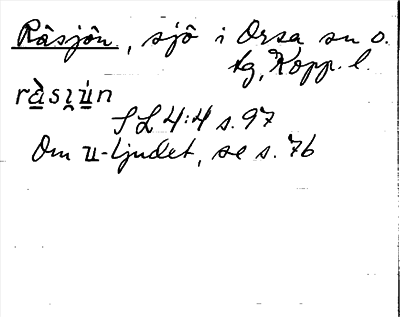 Råsjön, sjö i Orsa sn o.
tg, Kopp. l.
rå̀si̯ún
SL 4:4 s. 97
Om u-ljudet, se s. 76